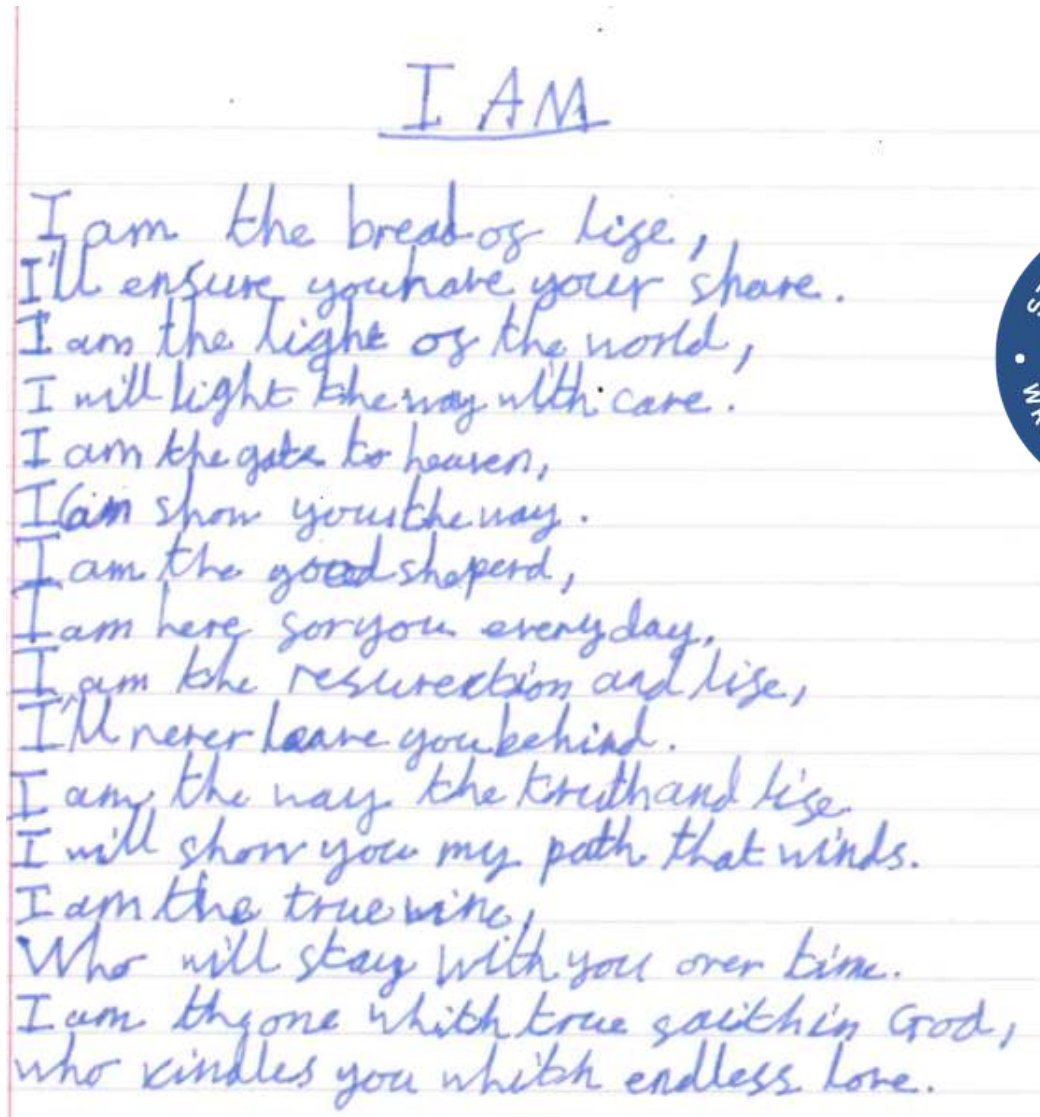 I AM
I am the bread of life,
I'll ensure you have your share.
I am the light of the world,
I will light the way with care.
I am the gate to heaven,
I can show you the way.
I am the good sheperd,
I am here for you everyday.
I am the resurection and life,
I'll never leave you behind.
I am the way the truth and life
I will show you my path that winds.
I am the true vine,
Who will stay with you over time.
I am the one whith true faith in God,
who kindles you whith endless love.